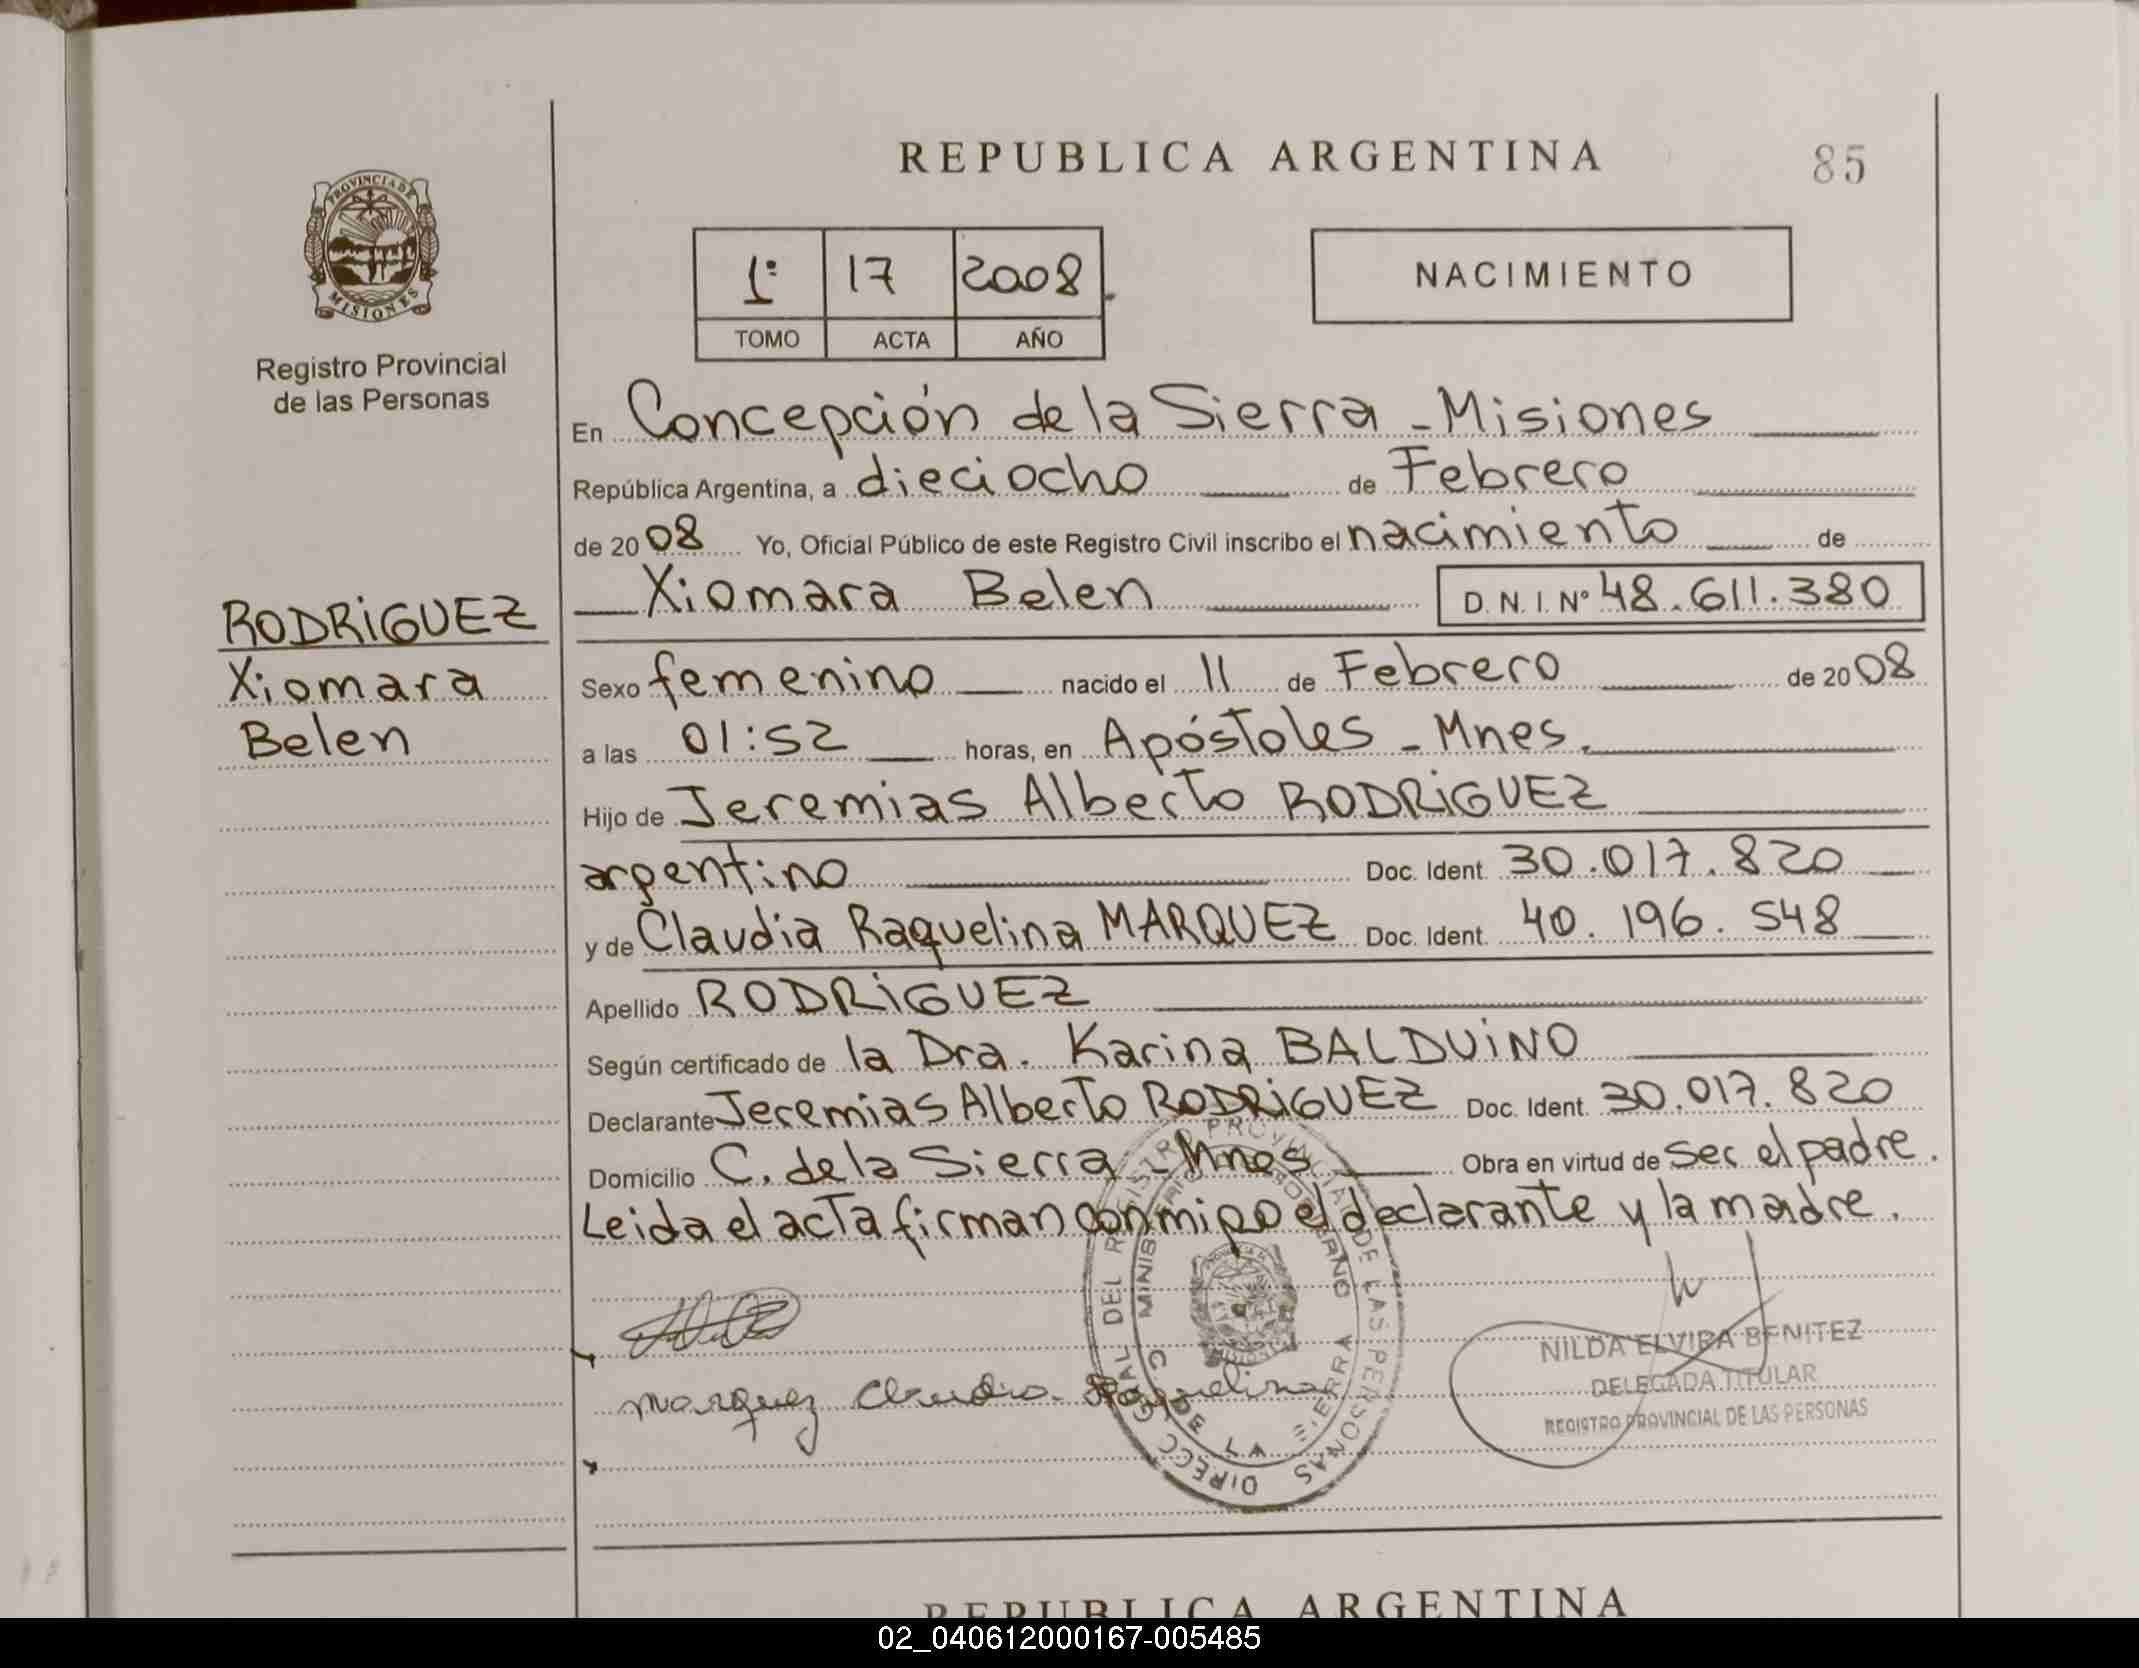 REPUBLICA ARGENTINA
85
PROVINCIA DE
MISIONES
Registro Provincial
de las Personas
1º 17 2008
TOMO ACTA AÑO
NACIMIENTO
En Concepción de la Sierra - Misiones
República Argentina, a dieciocho de Febrero
de 2008 Yo, Oficial Público de este Registro Civil inscribo el nacimiento de
Xiomara Belen D.N.I.Nº 48.611.380
RODRiGUEZ
Xiomara
Belen
Sexo femenino nacido el 11 de Febrero de 2008
a las 01:52 horas, en Apóstoles - Mnes.
Hijo de Jeremias Alberto RODRiGUEZ
argentino Doc. Ident. 30.017.820
y de Claudia Raquelina MARQUEZ Doc. Ident. 40.196.548
Apellido RODRiGUEZ
Según certificado de la Dra. Karina BALDUiNO
Declarante Jeremias Alberto RODRiGUEZ Doc. Ident. 30.017.820
Domicilio C. de la Sierra - Mnes Obra en virtud de ser el padre.
Leida el acta firman con migo el declarante y la madre.
Marquez Claudia Raquelina
DIRECC GRAL DEL REGISTRO PROVINCIAL DE LAS PERSONAS
MINISTERIO GOBIERNO
C. DE LA SIERRA
NILDA ELVIRA BENITEZ
DELEGADA TITULAR
REGISTRO PROVINCIAL DE LAS PERSONAS
REPUBLICA ARGENTINA
02_040612000167-005485